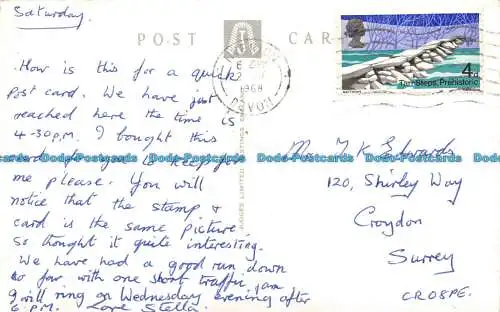 Saturday
POST CARD
How is this for a quick
post card. We have just
reached here the time is
4-30 p.m. I bought this
card for you to keep for
me please. You will
notice that the stamp &
card is the same picture
So thought it quite interesting.
We have had a good run down
so far with one short traffic jam
I will ring on Wednesday evening after
6 P.M. Love Stella.
1968
DEVON
4d
Tarr Steps, Prehistoric
JUDGES LIMITED HASTINGS
Edwards
120, Shirley Way
Croydon
Surrey
CRO8PE.
Do-Postcards Do-Postcards Do-Postcards Do-Postcards Do-Postcards